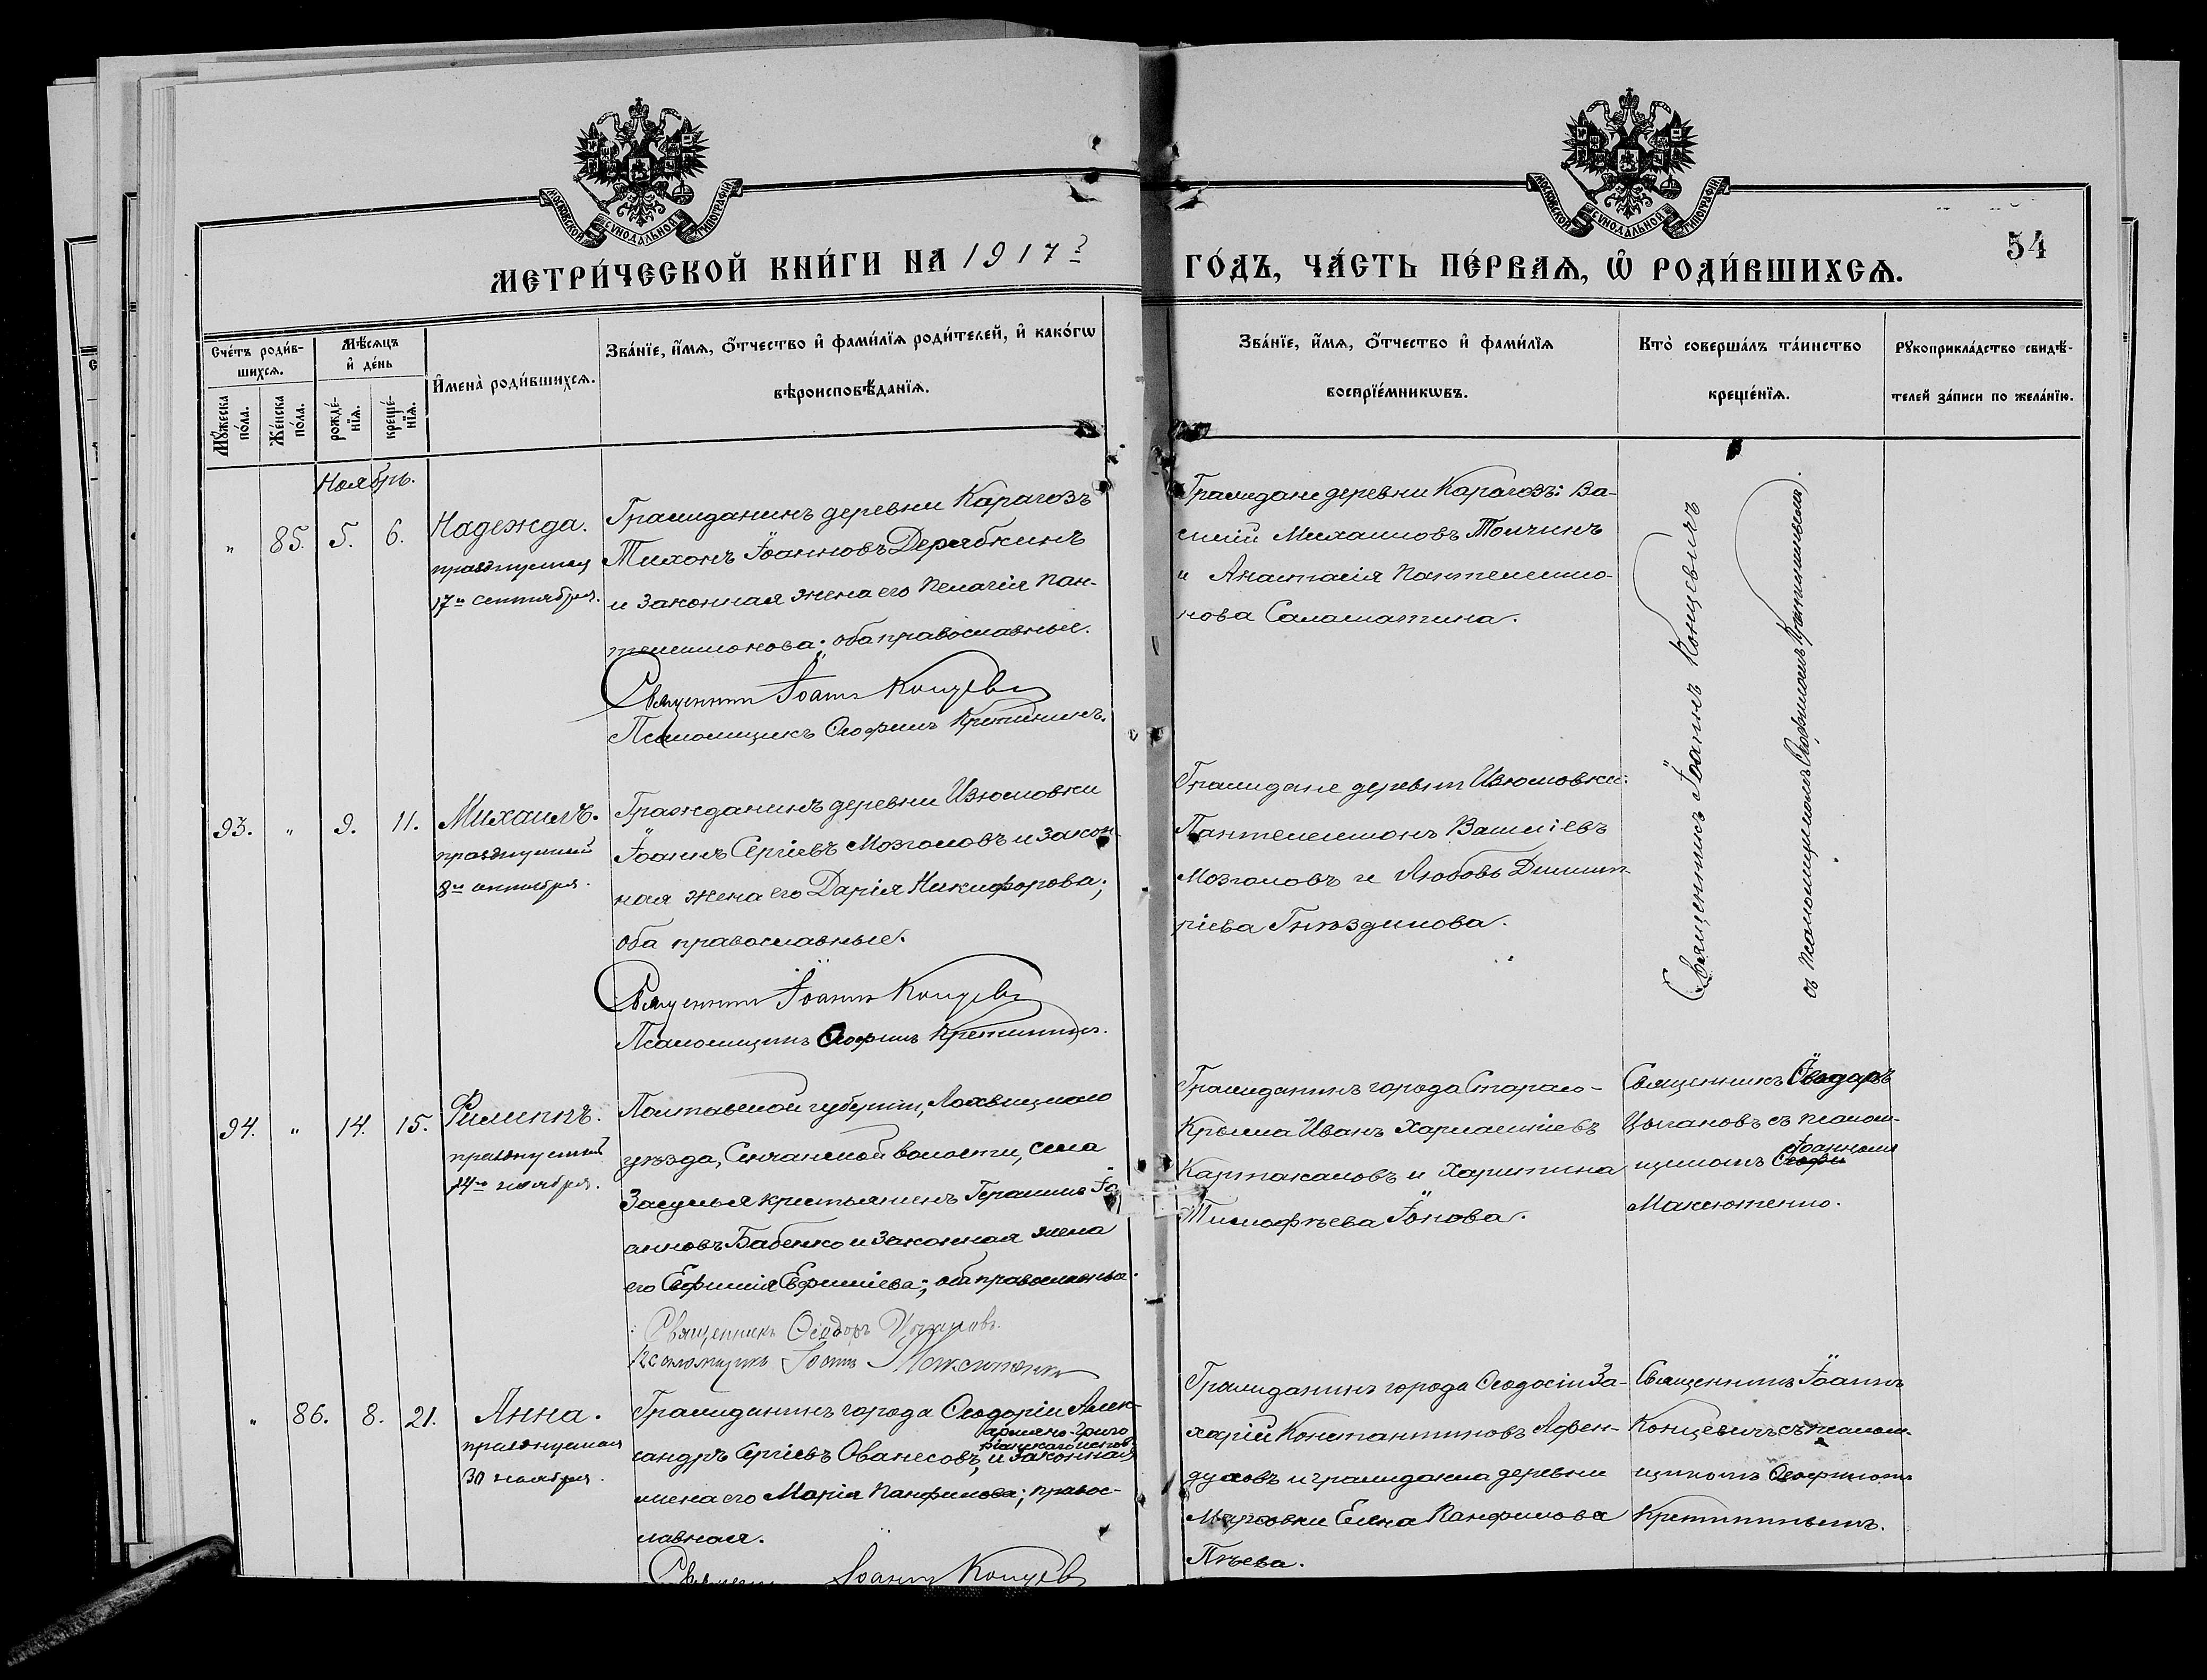 МОСКОВСКОЙ СУНОДАЛЬНОЙ ТИПОГРАФІИ
МОСКОВСКОЙ СУНОДАЛЬНОЙ ТИПОГРАФІИ
54
МЕТРИ́ЧЕСКОЙ КНИ́ГИ НА 1917 г. ГО́ДЪ, ЧА́СТЬ ПЕ́РВАѦ, Ѡ РОДИ́ВШИХСѦ.
Сче́тъ роди́в-
шихсѧ.
Мꙋ́жеска по́ла.
Же́нска по́ла.
Мѣ́сѧцъ
и де́нь
рожде́-
нїѧ.
креще́-
нїѧ.
Имена̀ роди́вшихсѧ.
Зва́нїе, и́мѧ, ѻ́тчество и фами́лїѧ роди́телей, и како́гѡ
вѣроисповѣ́данїѧ.
Зва́нїе, и́мѧ, ѻ́тчество и фами́лїѧ
воспрїе́мникѡвъ.
Кто̀ соверша́лъ та́инство
креще́нїѧ.
Рꙋкоприкла́дство свидѣ́-
телей за́писи по жела́нїю.
Ноябрь.
" 85. 5. 6.
Надежда.
празднуемая
17го сентября.
Гражданинъ деревни Карагозъ
Тихонъ Іоанновъ Дерябкинъ
и законная жена его Пелагія Пан-
телеимонова; оба православные.
Священникъ Іоаннъ Концевичъ
Псаломщикъ Ѳеофилъ Кретининъ.
Граждане деревни Карагозъ: Ва-
силій Михаиловъ Толчинъ
и Анастасія Пантелеимо-
нова Саламатина.
Священникъ Іоаннъ Концевичъ
съ псаломщикомъ Ѳеофиломъ Кретининымъ.
93. " 9. 11.
Михаилъ.
празднуемый
8го октября.
Гражданинъ деревни Изюмовки
Іоаннъ Сергіевъ Мозголовъ и закон-
ная жена его Дарія Никифорова;
оба православные.
Священникъ Іоаннъ Концевичъ
Псаломщикъ Ѳеофилъ Кретининъ.
Граждане деревни Изюмовки:
Пантелеимонъ Василіевъ
Мозголовъ и Любовь Димит-
ріева Гнѣздилова.
94. " 14. 15.
Филиппъ.
празднуемый
14го ноября.
Полтавской губерніи, Лохвицкаго
уѣзда, Сенчанской волости, села
Засулья крестьянинъ Герасимъ Іо-
анновъ Бабенко и законная жена
его Евфимія Евфиміева; оба православные.
Священникъ Ѳеодоръ Цыгановъ.
Псаломщикъ Іоаннъ Максютенко
Гражданинъ города Стараго-
Крыма Иванъ Харлампіевъ
Картакаловъ и Харитина
Тимофѣева Іонова.
Священникъ Ѳеодоръ
Цыгановъ съ псалом-
щикомъ Іоанномъ
Максютенко.
" 86. 8. 21.
Анна.
празднуемая
30 ноября.
Гражданинъ города Ѳеодосіи Алек-
сандръ Сергіевъ Ованесовъ, армяно-григо
ріанскаго испов. и законная
жена его Марія Панфилова; правос-
лавная.
Іоаннъ Концевичъ
Гражданинъ города Ѳеодосіи За-
харій Константиновъ Афен-
дуловъ и гражданка деревни
Елена Панфилова
Священникъ Іоаннъ
Концевичъ съ псалом-
щикомъ Ѳеофиломъ
Кретининымъ.